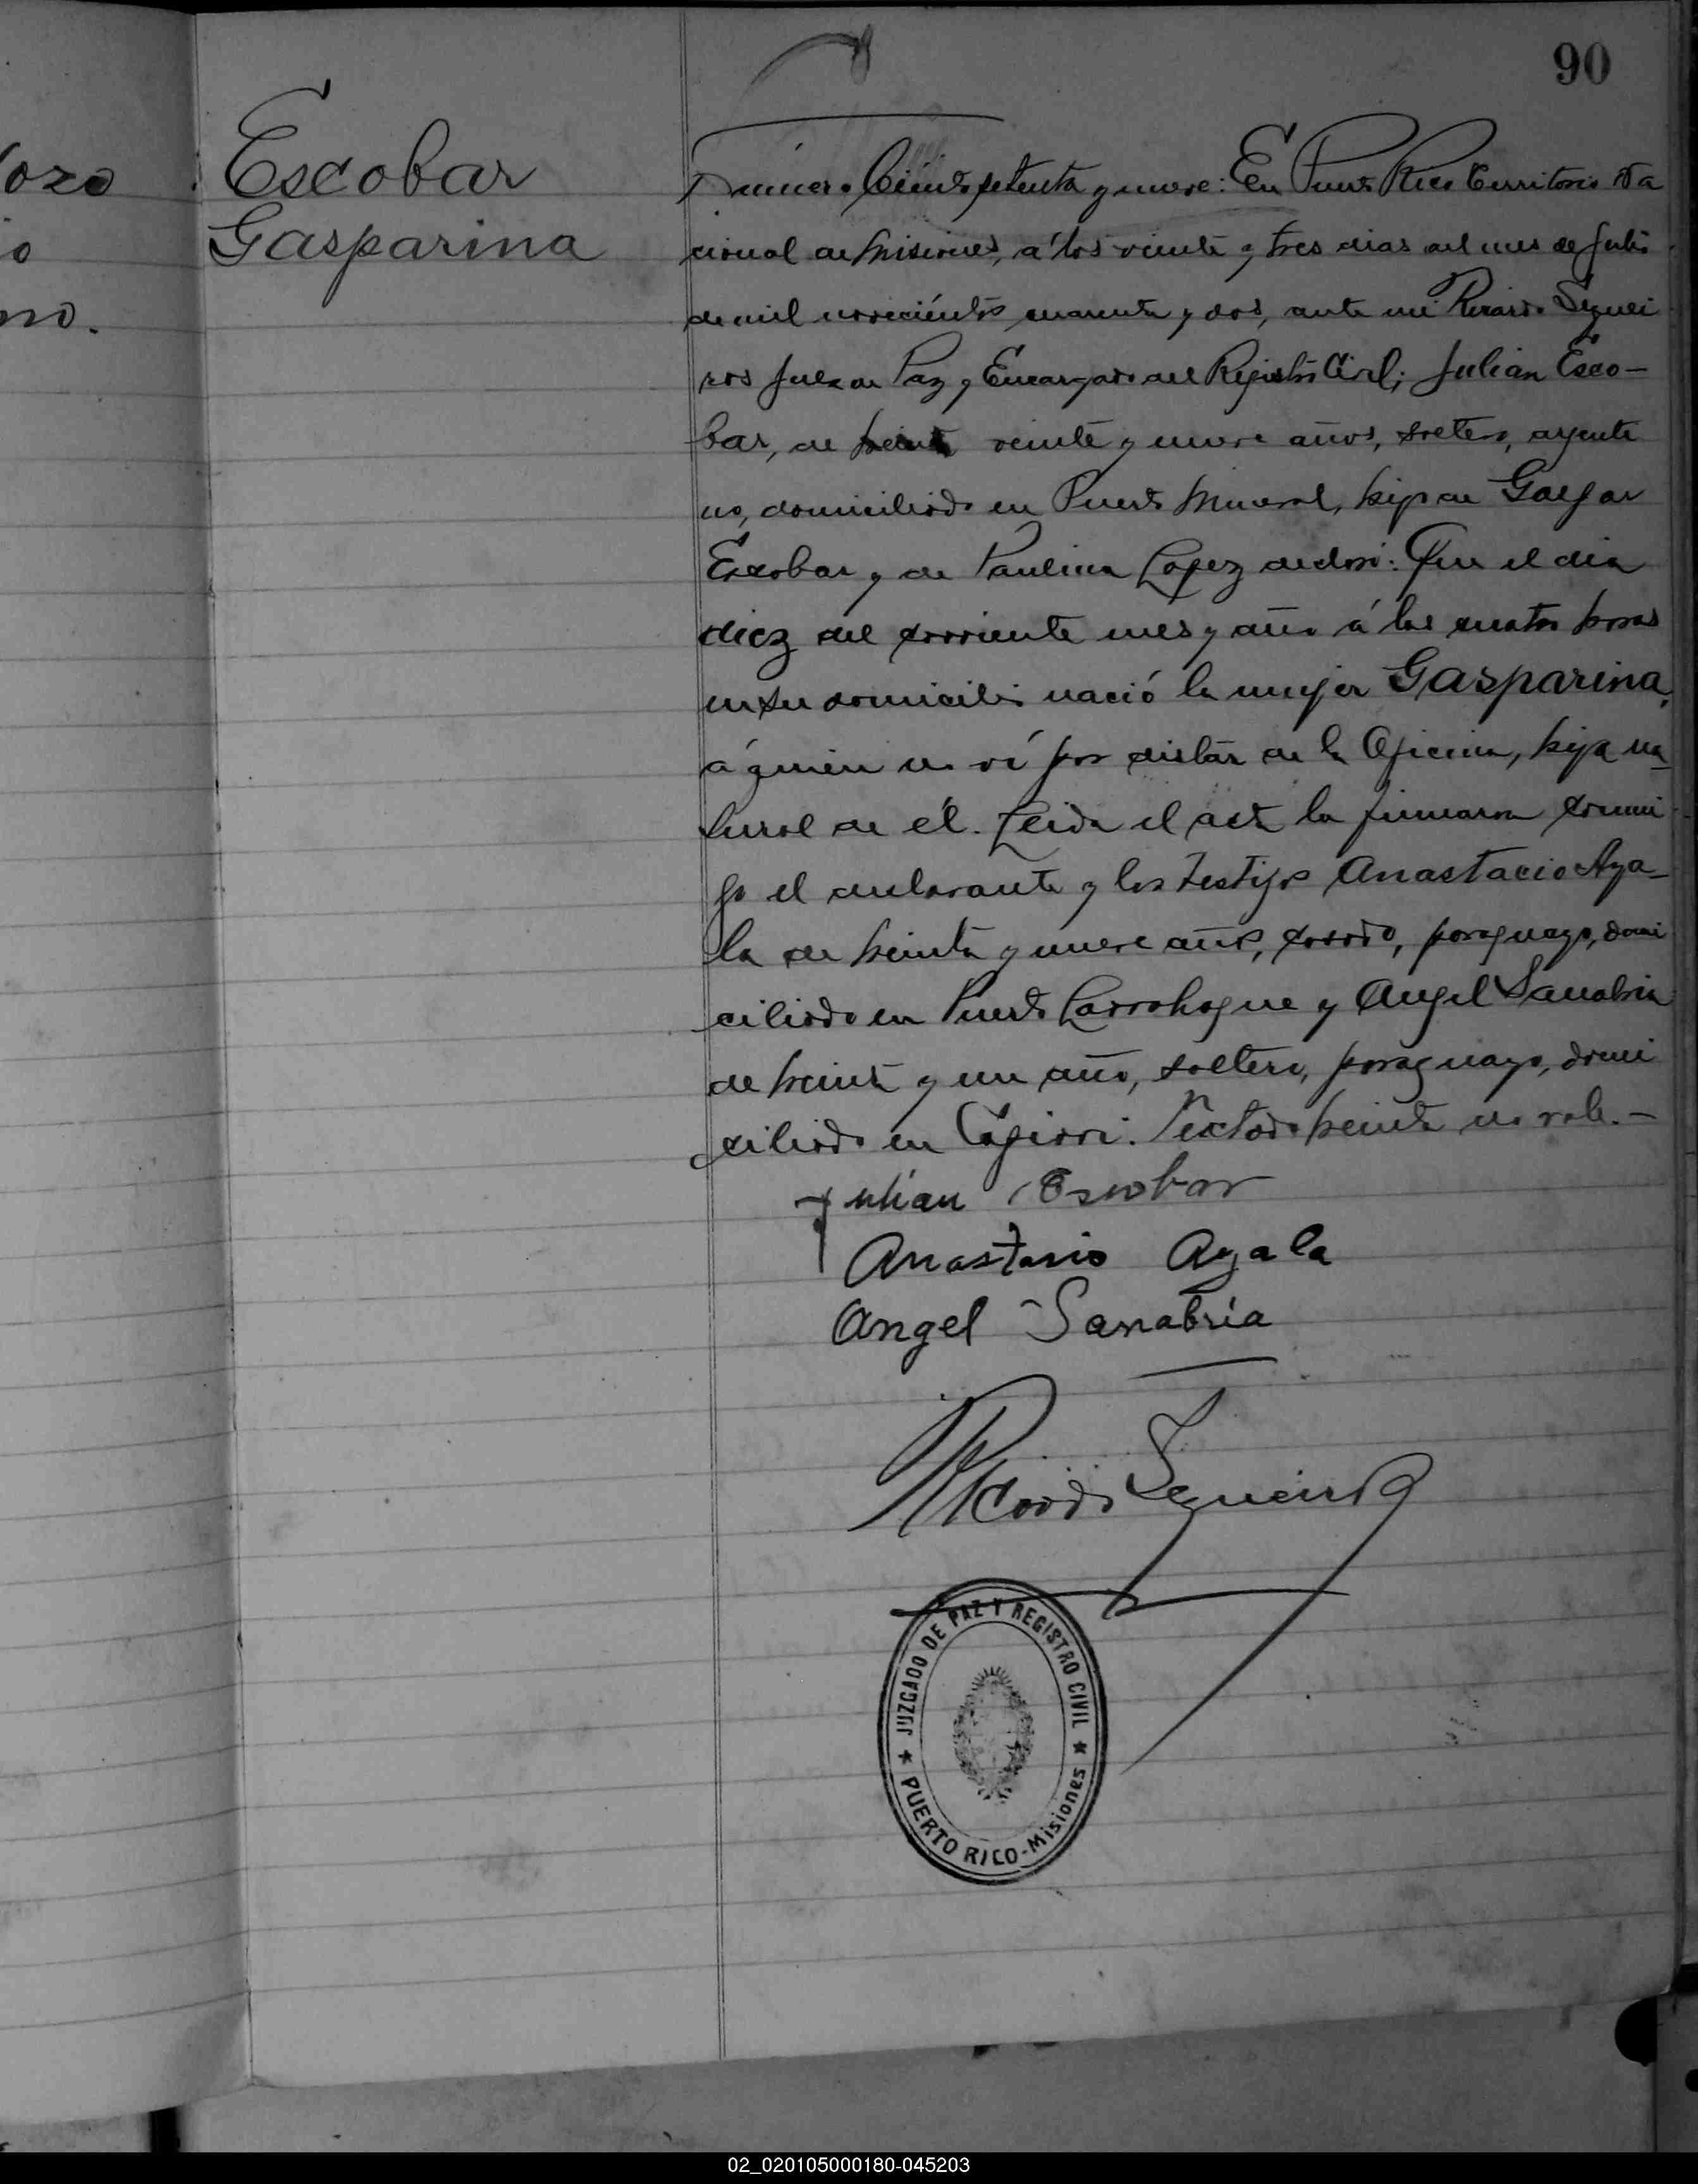 90
Escobar
Gasparina
ozo
o
no.
Número Ciento setenta y nueve: En Puerto Rico Territorio Na
cional de Misiones, á los veinte y tres dias del mes de Julio
de mil novecientos cuarenta y dos, ante mi Ricardo Seguei
ros Juez de Paz y Encargado del Registro Civil; Julian Esco-
bar, de treinta veinte y nueve años, soltero, argenti
no, domiciliado en Puerto Mineral, hijo de Gaspar
Escobar y de Paulina Lopez declaró: Que el dia
diez del corriente mes y año á las cuatro horas
en su domicilio nació la mujer Gasparina,
á quien no ví por distar de la Oficina, hija na-
tural de él. Leida el acta la firmaron conmi
go el declarante y los testigos Anastacio Aya-
la de treinta y nueve años, casado, paraguayo, domi
ciliado en Puerto Larrohague y Angel Sanabria
de treinta y un año, soltero, paraguayo, domi
ciliado en Capiovi. Testado treinta no vale.-
Julián Escobar
Anastasio Ayala
Angel Sanabria
Ricardo Segueiros
JUZGADO DE PAZ Y REGISTRO CIVIL
PUERTO RICO-Misiones
02_020105000180-045203